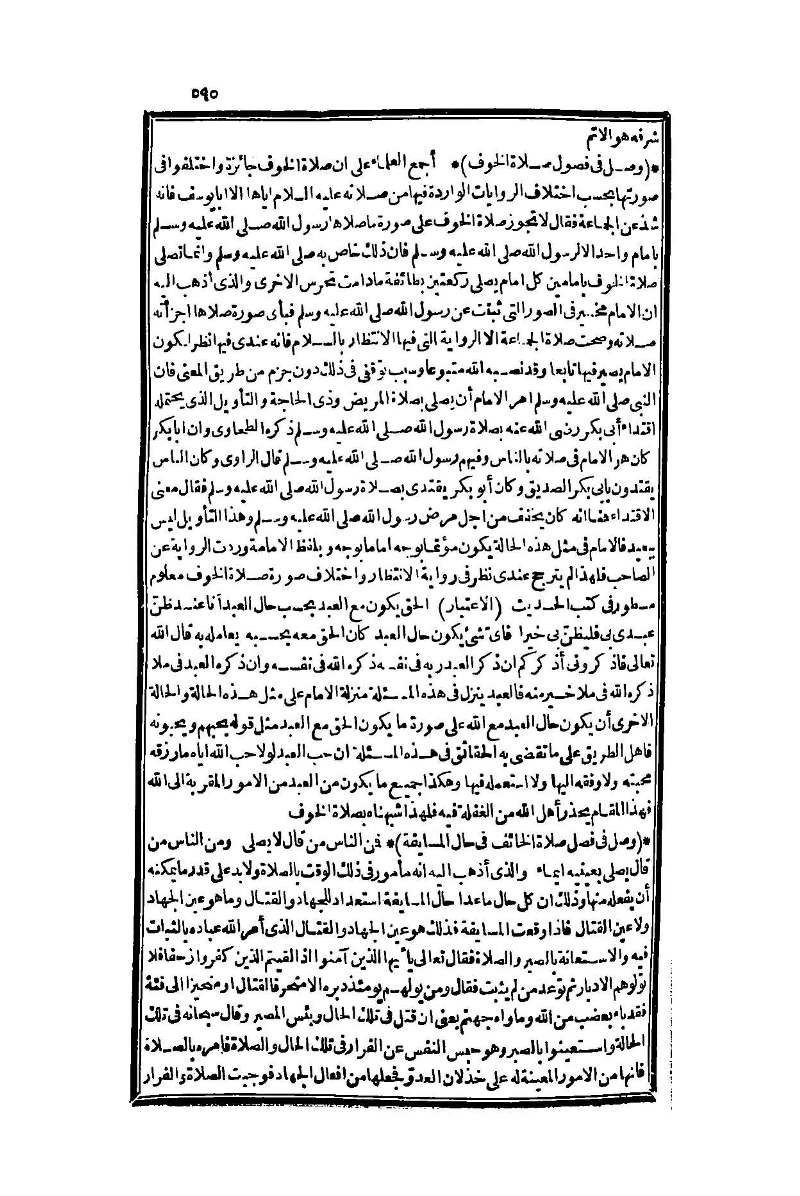 ٥٩٠
شرفه هو الاتم
*(وصل فى فصول صلاة الخوف)* أجمع العلماء على ان صلاة الخوف جائزة واختلفوا فى
صورتها بحسب اختلاف الروايات الواردة فيها من صلاته عليه السلام اياها الا ابا يوسف فانه
شذ عن الجماعة فقال لا تجوز صلاة الخوف على صورة ما صلاها رسول الله صلى الله عليه وسلم
بامام واحد الا لرسول الله صلى الله عليه وسلم فان ذلك خاص به صلى الله عليه وسلم وانما تصلى
صلاة الخوف بامامين كل امام يصلى ركعتين بطائفة مادامت تحرس الاخرى والذى أذهب اليه
ان الامام مخير فى الصور التى ثبتت عن رسول الله صلى الله عليه وسلم فبأى صورة صلاها اجزأته
صلاته وصحت صلاة الجماعة الا الرواية التى فيها الانتظار بالسلام فانه عندى فيها نظر لكون
الامام يصير فيها تابعا وقد نصبه الله متبوعا وسبب توقفى فى ذلك دون جزم من طريق المعنى فان
النبى صلى الله عليه وسلم امر الامام أن يصلى بصلاة المريض وذى الحاجة والتأويل الذى يحتمله
اقتداء أبى بكر رضى الله عنه بصلاة رسول الله صلى الله عليه وسلم ذكره الطحاوى وان ابا بكر
كان هو الامام فى صلاته بالناس وفيهم رسول الله صلى الله عليه وسلم قال الراوى وكان الناس
يقتدون بابى بكر الصديق وكان أبو بكر يقتدى بصلاة رسول الله صلى الله عليه وسلم فقال معنى
الاقتداء هنا انه كان يخفف من اجل مرض رسول الله صلى الله عليه وسلم وهذا التأويل ليس
ببعيد فالامام فى مثل هذه الحالة يكون مؤتما بوجه اماما بوجه وبلفظ الامامة وردت الرواية عن
الصاحب فلهذا لم يترجح عندى نظر فى رواية الانتظار واختلاف صورة صلاة الخوف معلوم
مسطور فى كتب الحديث (الاعتبار) الحق يكون مع العبد بحسب حال العبد أنا عند ظن
عبدى بى فليظن بى خيرا فاى شئ يكون حال العبد كان الحق معه بحسبه يعامله به قال الله
تعالى فاذكرونى أذكركم ان ذكر العبد ربه فى نفسه ذكره الله فى نفسه وان ذكره العبد فى ملا
ذكره الله فى ملا خير منه فالعبد ينزل فى هذه المسئلة منزلة الامام على مثل هذه الحالة والحالة
الاخرى أن يكون حال العبد مع الله على صورة ما يكون الحق مع العبد مثل قوله يحبهم ويحبونه
فاهل الطريق على ما تقضى به الحقائق فى هذه المسئلة ان حب العبد لولا حب الله اياه ما رزقه
محبته ولا وفقه اليها ولا استعمله فيها وهكذا جميع ما يكون من العبد من الامور المقربة الى الله
فهذا المقام يحذر أهل الله من الغفلة فيه فلهذا شبهناه بصلاة الخوف
*(وصل فى فصل صلاة الخائف فى حال المسايفة)* فمن الناس من قال لا يصلى ومن الناس من
قال يصلى بعينيه ايماء والذى أذهب اليه انه مأمور فى ذلك الوقت بالصلاة ولا بد على قدر ما يمكنه
أن يفعله منها وذلك ان كل حال ماعدا حال المسايفة استعداد للجهاد والقتال وما هو عين الجهاد
ولا عين القتال فاذا وقعت المسايفة فذلك هو عين الجهاد والقتال الذى أمر الله عباده بالثبات
فيه والاستعانة بالصبر والصلاة فقال تعالى يا أيها الذين آمنوا اذا لقيتم الذين كفروا زحفا فلا
تولوهم الادبار ثم توعد من لم يثبت فقال ومن يولهم يومئذ دبره الا متحرفا لقتال او متحيزا الى فئة
فقد باء بغضب من الله ومأواه جهنم يعنى ان قتل فى تلك الحال وبئس المصير وقال سبحانه فى تلك
الحالة واستعينوا بالصبر وهو حبس النفس عن الفرار فى تلك الحال والصلاة فامره بالصلاة
فانها من الامور المعينة له على خذلان العدو فجعلها من افعال الجهاد فوجبت الصلاة والفرار